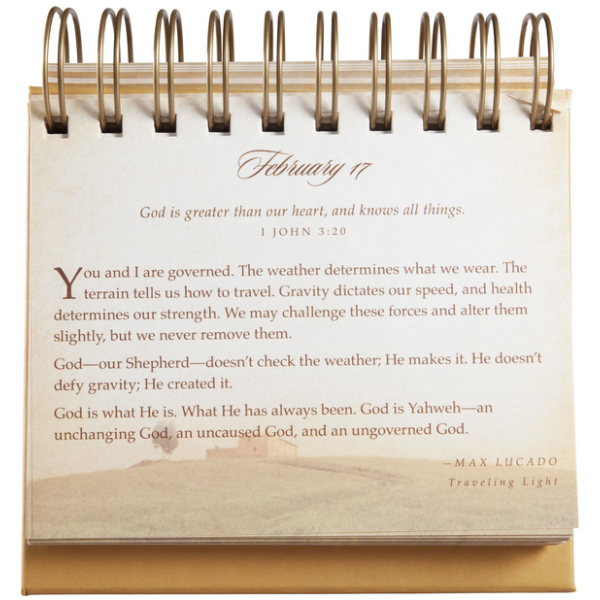 February 17
God is greater than our heart, and knows all things.
1 JOHN 3:20
You and I are governed. The weather determines what we wear. The
terrain tells us how to travel. Gravity dictates our speed, and health
determines our strength. We may challenge these forces and alter them
slightly, but we never remove them.
God—our Shepherd—doesn't check the weather; He makes it. He doesn't
defy gravity; He created it.
God is what He is. What He has always been. God is Yahweh—an
unchanging God, an uncaused God, and an ungoverned God.
—MAX LUCADO
Traveling Light